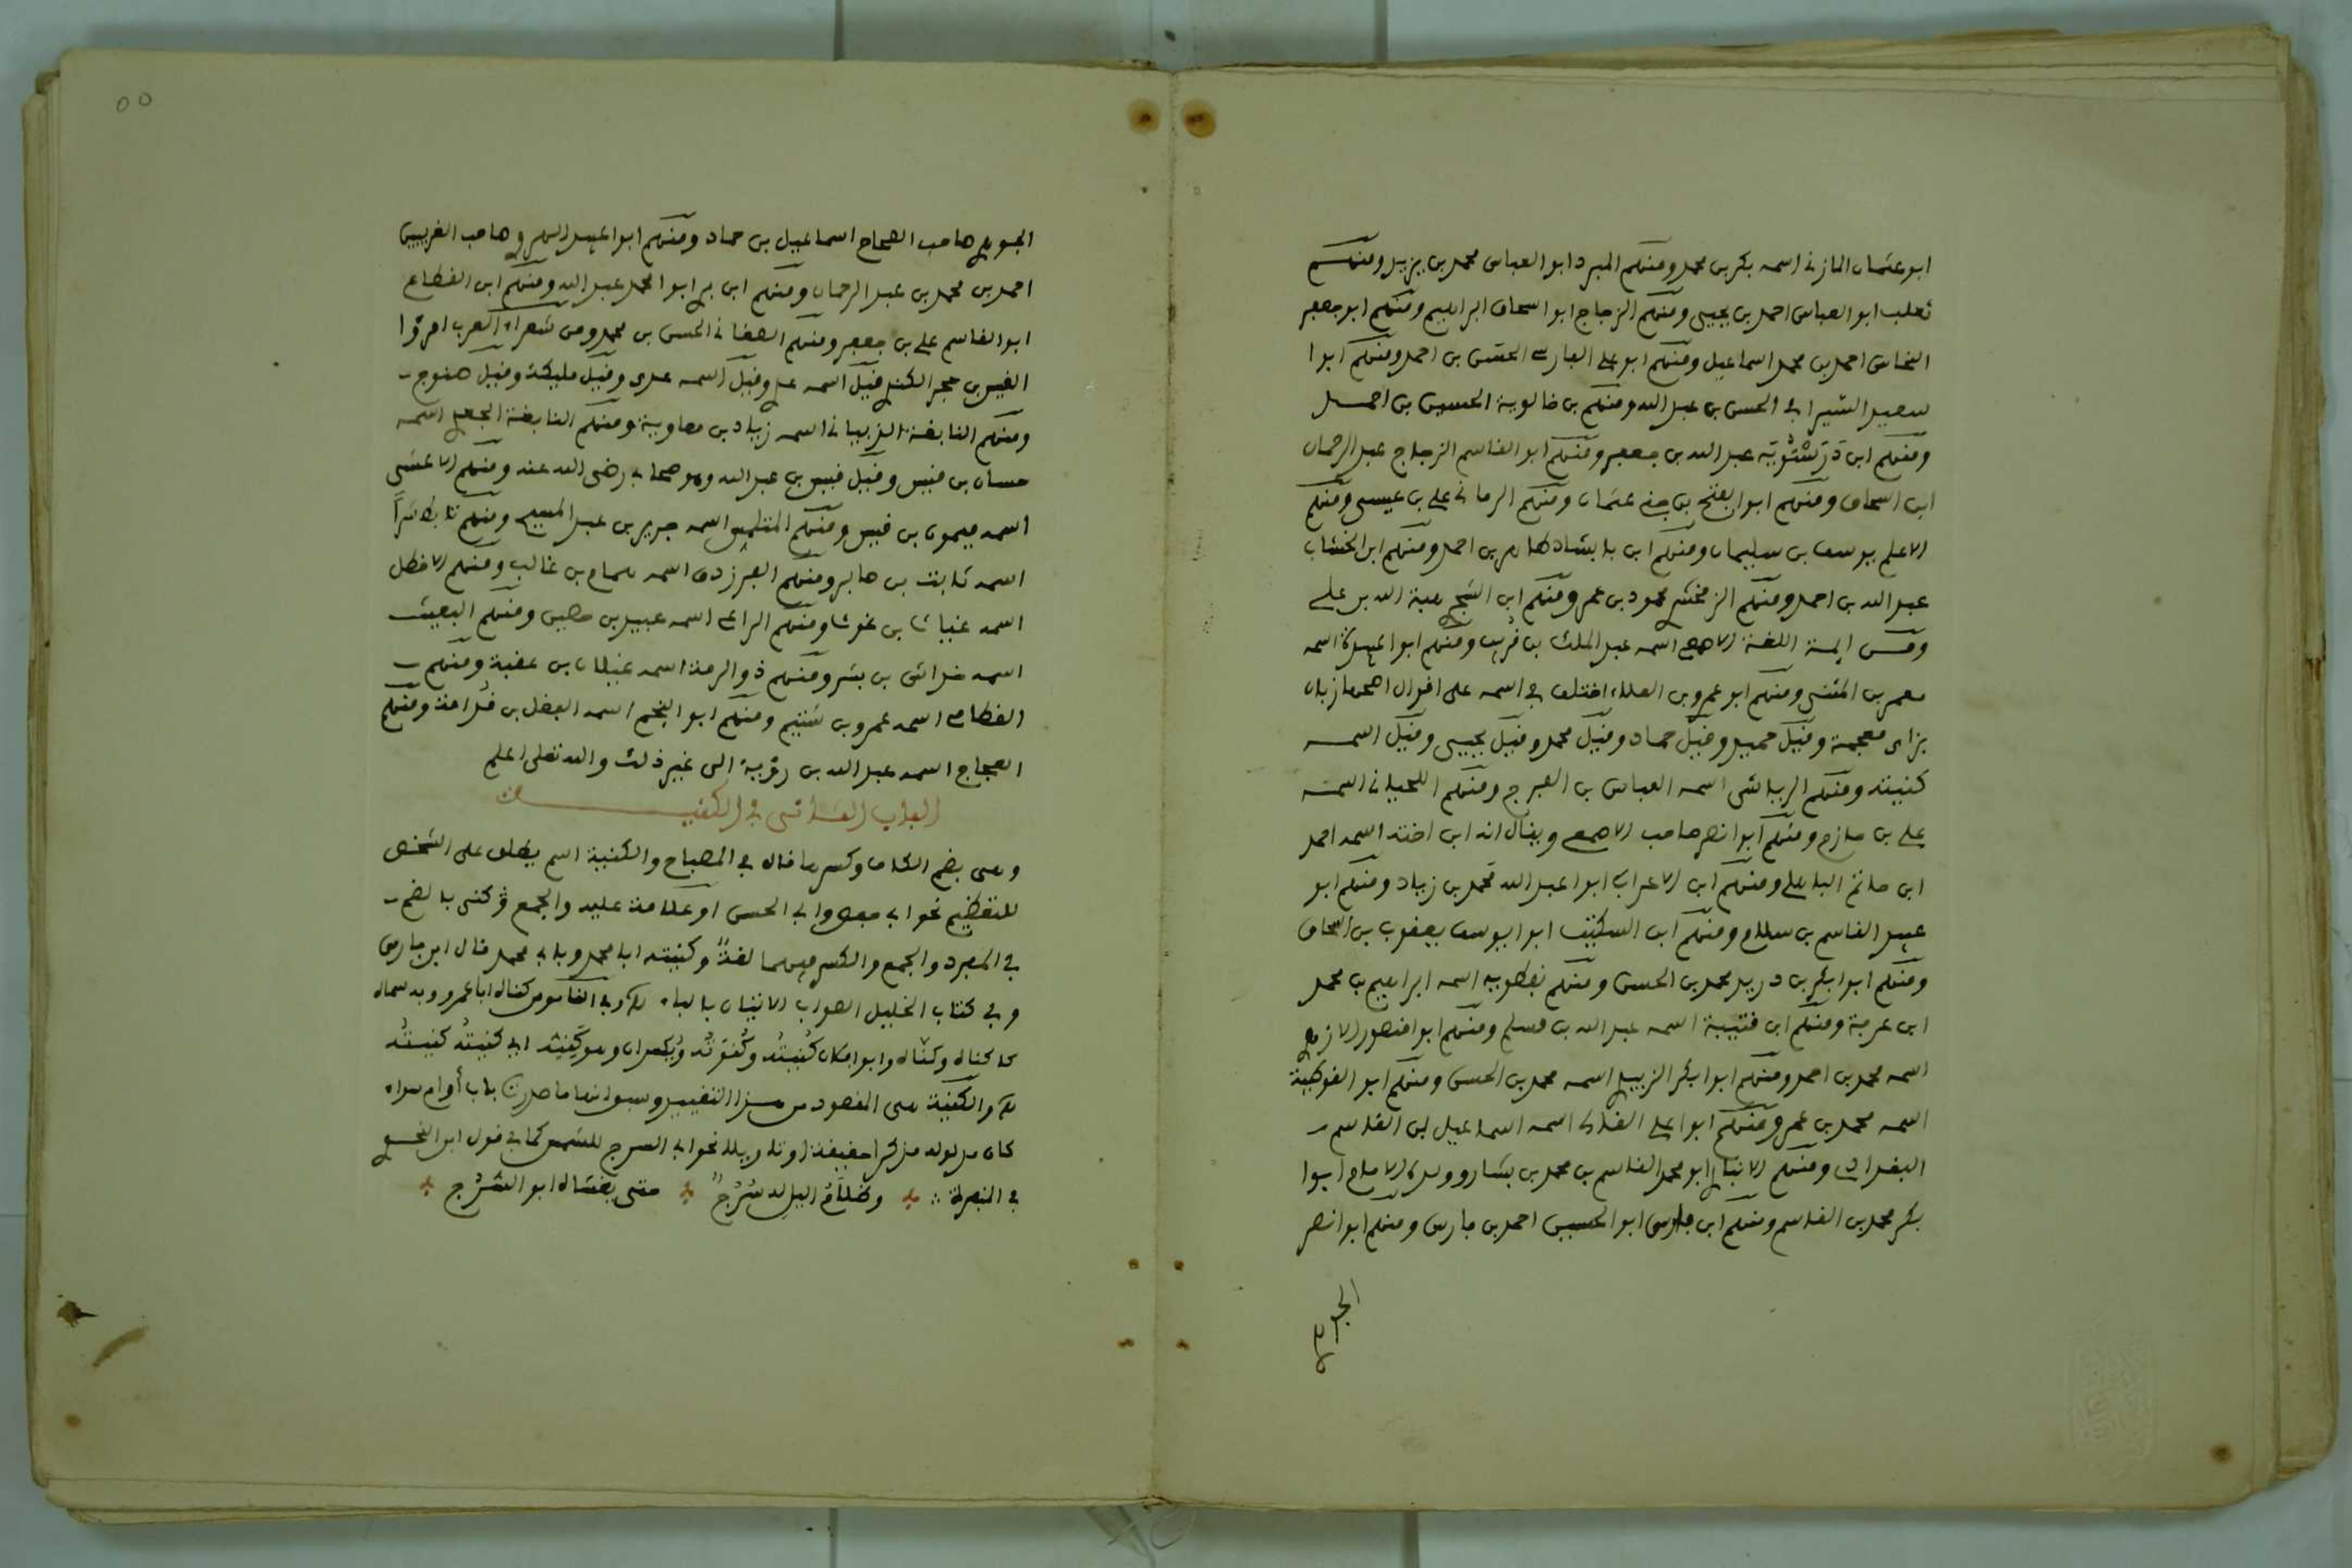 ابو عثمان المازنى اسمه بكر بن محمد ومنهم المبرد ابو العباس محمد بن يزيد ومنهم
ثعلب ابو العباس احمد بن يحيى ومنهم الزجاج ابو اسحاق ابراهيم ومنهم ابو جعفر
النحاس احمد بن محمد اسماعيل ومنهم ابو على الفارسى الحسن بن احمد ومنهم ابوا
سعيد السيرافى الحسن بن عبد الله ومنهم بن خالوية الحسين بن احمد
ومنهم ابن درستويه عبد الله بن جعفر ومنهم ابو القاسم الزجاج عبد الرحمان
ابن اسحاق ومنهم ابوا الفتح بن جنى عثمان ومنهم الرمانى على بن عيسى ومنهم
الاعلم يوسف بن سليمان ومنهم ابن بابشاد طاهر بن احمد ومنهم ابن الخشاب
عبد الله بن احمد ومنهم الزمخشرى محمود بن عمر ومنهم ابن الشجرى هبة الله بن على
ومن ايمة اللغة الاصمعى اسمه عبد الملك بن قريب ومنهم ابوا عبيدة اسمه
معمر بن المثنى ومنهم ابو عمرو بن العلاء اختلف فى اسمه على اقوال اصحها زبان
بزاى معجمة وقيل حميد وقيل حماد وقيل محمد وقيل يحيى وقيل اسمه
كنيته ومنهم الرياشى اسمه العباس بن الفرج ومنهم اللحيانى اسمه
على بن حازم ومنهم ابوا نصر صاحب الاصمعى ويقال انه ابن اخته اسمه احمد
ابن حاتم الباهلى ومنهم ابن الاعرابى ابوا عبد الله محمد بن زياد ومنهم ابو
عبيد القاسم بن سلام ومنهم ابن السكيت ابوا يوسف يعقوب بن اسحاق
ومنهم ابوا بكر بن دريد محمد بن الحسن ومنهم نفطويه اسمه ابراهيم بن محمد
ابن عرفة ومنهم ابن قتيبة اسمه عبد الله بن مسلم ومنهم ابوا منصور الازهرى
اسمه محمد بن احمد ومنهم ابوا بكر الزبيدى اسمه محمد بن الحسن ومنهم ابو القوطية
اسمه محمد بن عمر ومنهم ابوا على القالى اسمه اسماعيل بن القاسم
البغدادى ومنهم الانبارى ابو محمد القاسم بن محمد بن بشار وولده الامام ابوا
بكر محمد بن القاسم ومنهم ابن فارس ابو الحسين احمد بن فارس ومنهم ابوا نصر
الجوهرى
٥٥
الجوهرى صاحب الصحاح اسماعيل بن حماد ومنهم ابوا عبيد الهروى صاحب الغريبين
احمد بن محمد بن عبد الرحمان ومنهم ابن برى ابوا محمد عبد الله ومنهم ابن القطاع
ابوا القاسم على بن جعفر ومنهم الصغانى الحسن بن محمد ومن شعراء العرب امرؤا
القيس بن حجر الكندى قيل اسمه عدى وقيل مليكة وقيل حندج
ومنهم النابغة الذبيانى اسمه زياد بن معاوية ومنهم النابغة الجعدى اسمه
حسان بن قيس وقيل قيس بن عبد الله وهو صحابى رضى الله عنه ومنهم الاعشى
اسمه ميمون بن قيس ومنهم المتلمس اسمه جرير بن عبد المسيح ومنهم تابط شرا
اسمه ثابت بن جابر ومنهم الفرزدق اسمه همام بن غالب ومنهم الاخطل
اسمه غياث بن غوث ومنهم الراعى اسمه عبيد بن حصين ومنهم البعيث
اسمه خداش بن بشر ومنهم ذو الرمة اسمه غيلان بن عقبة ومنهم
القطامى اسمه عمرو بن شييم ومنهم ابو النجم اسمه الفضل بن قدامة ومنهم
العجاج اسمه عبد الله بن رؤبة الى غير ذلك والله تعلى اعلم
الباب السادس فى الكنية
وهى بضم الكاف وكسرها قال فى المصباح والكنية اسم يطلق على الشخص
للتعظيم نحو ابى حفص وابى الحسن او علامة عليه والجمع كنى بالضم
فى المفرد والجمع والكسر فيهما لغة وكنيته ابا محمد وبابى محمد قال ابن فارس
وفى كتاب الخليل الصواب الاتيان بالباء وفى القاموس كناه ابا عمرو وبه سماه
كاكناه وكناه وابوا فلان كنيته وكنوته ويكسران وهو كنيه اى كنيته كنيته
والكنية هى المقصود من هذا التقييد وسواء منها ما صدر بأب أو ام سواء
كان له ولد مذكرا حقيقة او تاويلا نحو ابى السرج للشمس كما فى قول ابى النحوى
فى المنفرجة وظلام الليل له سرج حتى يغشاه ابو السرج